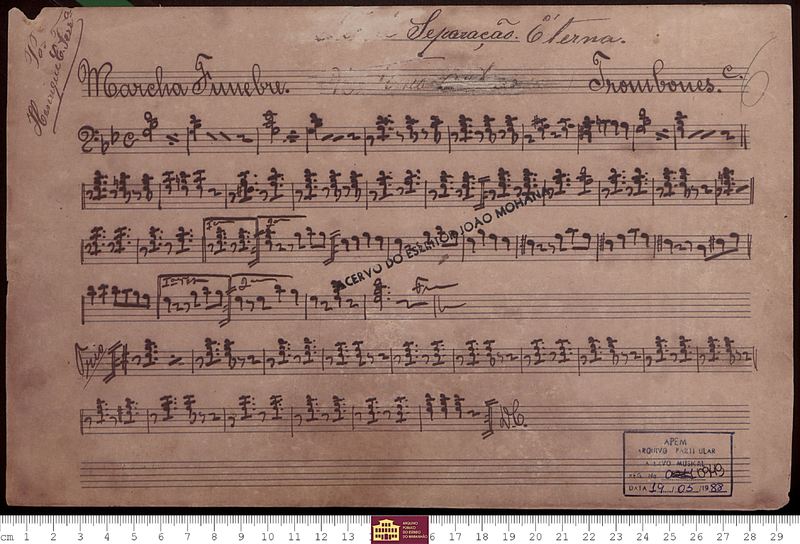 Separação Eterna.
Marcha Funebre.
Trombones. C.
Henrique
1ª
2ª
ACERVO DO ESCRITOR JOÃO MOHANA
1ª vez
2ª
Fim
Trio
D.C.
APEM
ARQUIVO PARTICULAR
ACERVO MUSICAL
REG. No 0949
DATA 19 / 05 / 1988
cm 1 2 3 4 5 6 7 8 9 10 11 12 13 16 17 18 19 20 21 22 23 24 25 26 27 28 29
ARQUIVO
PÚBLICO
DO ESTADO
DO MARANHÃO